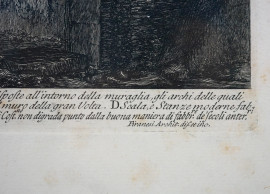 sposte all'intorno della muraglia, gli archi delle quali
muro della gran Volta. D. Scala, e Stanze moderne fab-
Cost. non digrada punto dalla buona maniera di fabbr. de' secoli anter.
Piranesi Archit. dis. et inc.